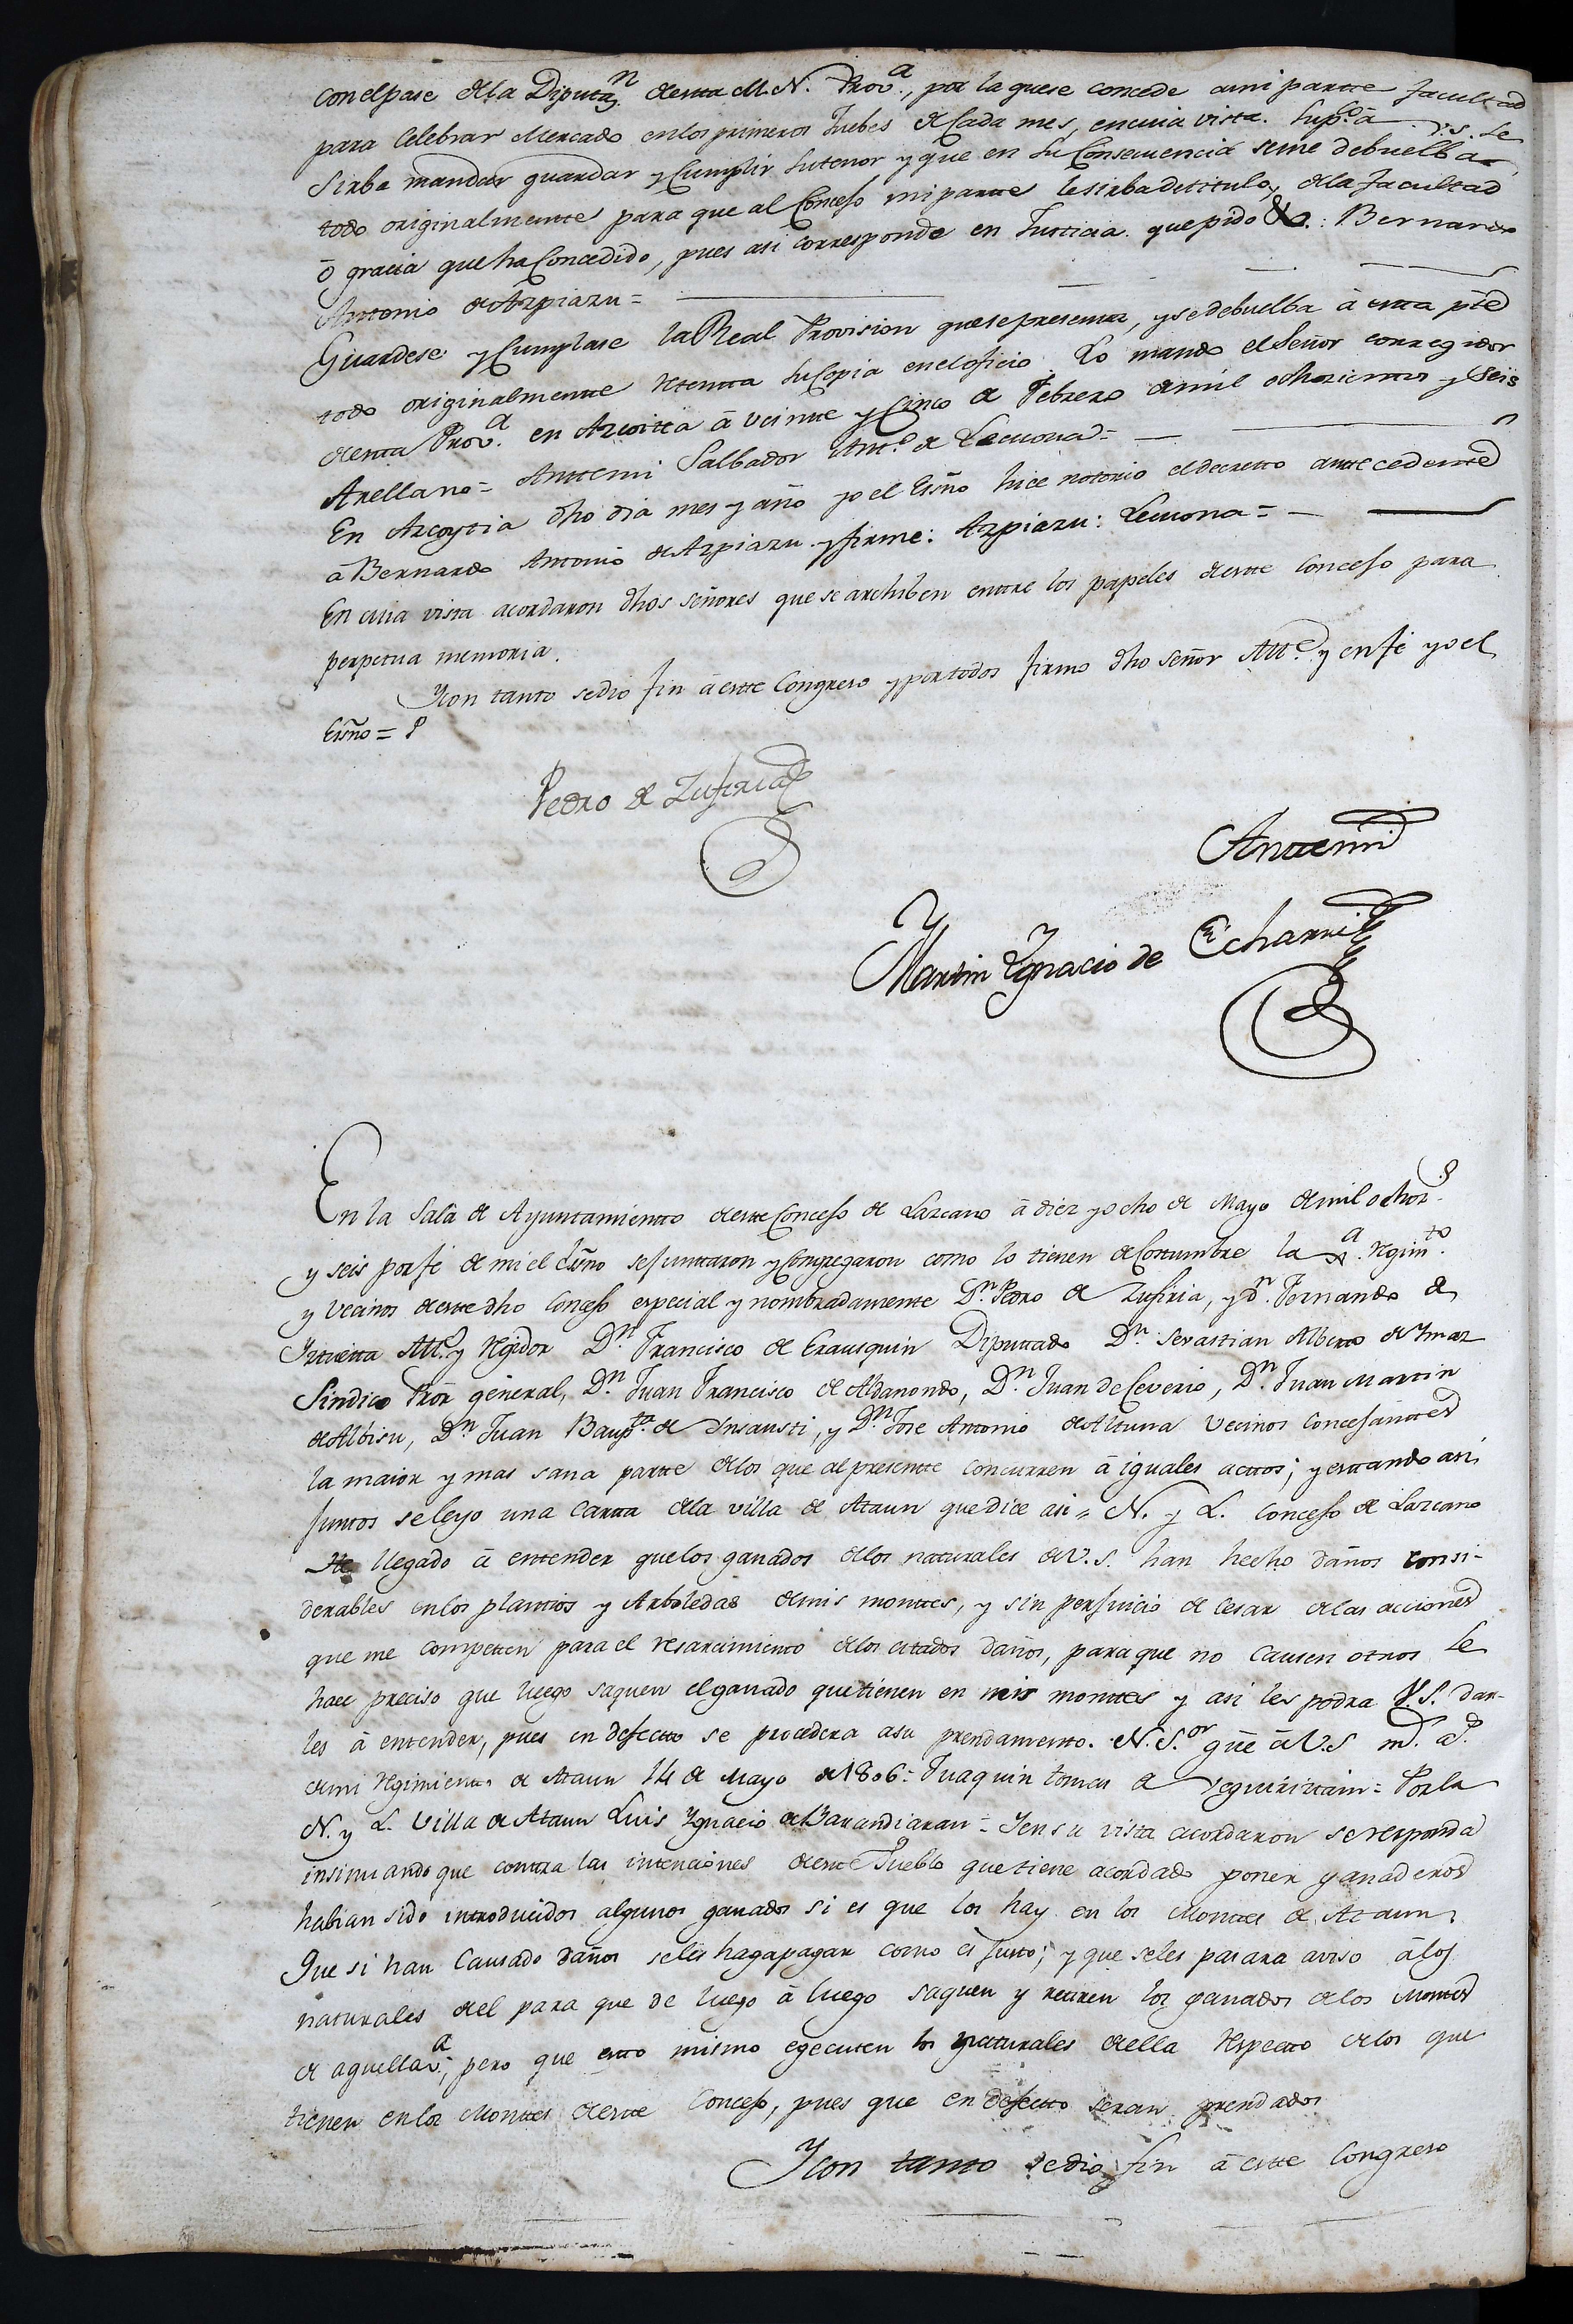 con el pase de la Diputn. de esta M. N. Prova., por la que se concede a mi partte facultad
para Celebrar Mercado en los primeros Juebes de Cada mes, en cuia vista. Supco. a V.S. se
Sirba mandar guardar y Cumplir su tenor y que en su Consecuencia se me debuelba
todo originalmentte para que al Concejo mi partte le sirba de titulo, de la facultad
ó gracia que ha Concedido, pues asi corresponde en Justicia que pido &a.: Bernardo
Anttonio de Azpiazu =
Guardese y Cumplase la Real Provision que se presentta, y se debuelba à estta pte
todo originalmentte rettentta su Copia en el oficio. Lo mando el Señor corregidor
de estta Prova. en Azcoitia à veintte y Cinco de Febrero de mil ochozienttos y seis
Arellano = Anttemi Salbador Antto. de Lecuona =
En Azcoytia dho dia mes y año yo el Esño hice notorio el decretto anttecedentte
à Bernardo Antonio de Azpiazu y firme: Azpiazu: Lecuona =
En cuia vista acordaron dhos señores que se archiben enttre los papeles de estte Concejo para
perpetua memoria.
Y con tanto se dio fin à estte Congreso y por todos firmo dho señor Alle. y en fe yo el
Esño =
Pedro de Zufiria
Anttemi
Martin Ygnacio de Echarri
En la Sala de Ayuntamientto de estte Concejo de Lazcano à diez y ocho de Mayo de mil ochozs.
y seis por fe de mi el Esño se junttaron y Congregaron como lo tienen de Costumbre la Justa. Regimto.
y Vecinos de estte dho Concejo especial y nombradamente Dn. Pedro de Zufiria, y Dn. Fernando de
Yztuetta Alle. y Regidor Dn. Francisco de Erausquin Diputtado Dn. Sevastian Alberto de Ymaz
Sindico Pror general, Dn. Juan Francisco de Aldanondo, Dn. Juan de Ceverio, Dn. Juan Martin
de Albisu, Dn. Juan Baupta. de Ynsausti, y Dn. Jose Antonio de Altuna Vecinos Concejanttes
la maior y mas sana partte de los que al presentte concurren à iguales acttos; y esttando asi
juntos se leyo una Cartta de la villa de Ataun que dice asi = N. y L. Concejo de Lazcano
He llegado à entender que los ganados de los naturales de V.S. han hecho daños consi-
derables en los planttios y Arboledas de mis monttes, y sin perjuicio de cesar de las acciones
que me competten para el resarcimiento de los citados daños, para que no causen otros se
hace preciso que luego saquen el ganado que tienen en mis monttes y asi les podra V.S. dar-
les à entender, pues en defectto se procedera a su prendamiento. N. S.or güe à V.S ms. as.
de mi Regimiento de Ataun 14 de Mayo de 1806 = Juaquin tomas de Yeguiriztain = Por la
N. y L. Villa de Ataun Luis Ygnacio de Barandiaran = Y en su vista acordaron se responda
insinuando que contra las intenciones de estte Pueblo que tiene acordado poner ganaderos
habian sido introducidos algunos ganados si es que los hay en los Monttes de Ataun
Que si han Causado daños se les haga pagar como es justo; y que se les pasara aviso à los
naturales de el para que de luego à luego saquen y retiren los ganados de los Montes
de aquella Va., pero que estto mismo egecuten los naturales de ella respectto de los que
tienen en los Monttes de estte Concejo, pues que en defectto seran prendados
Y con tanto se dio fin à estte Congreso